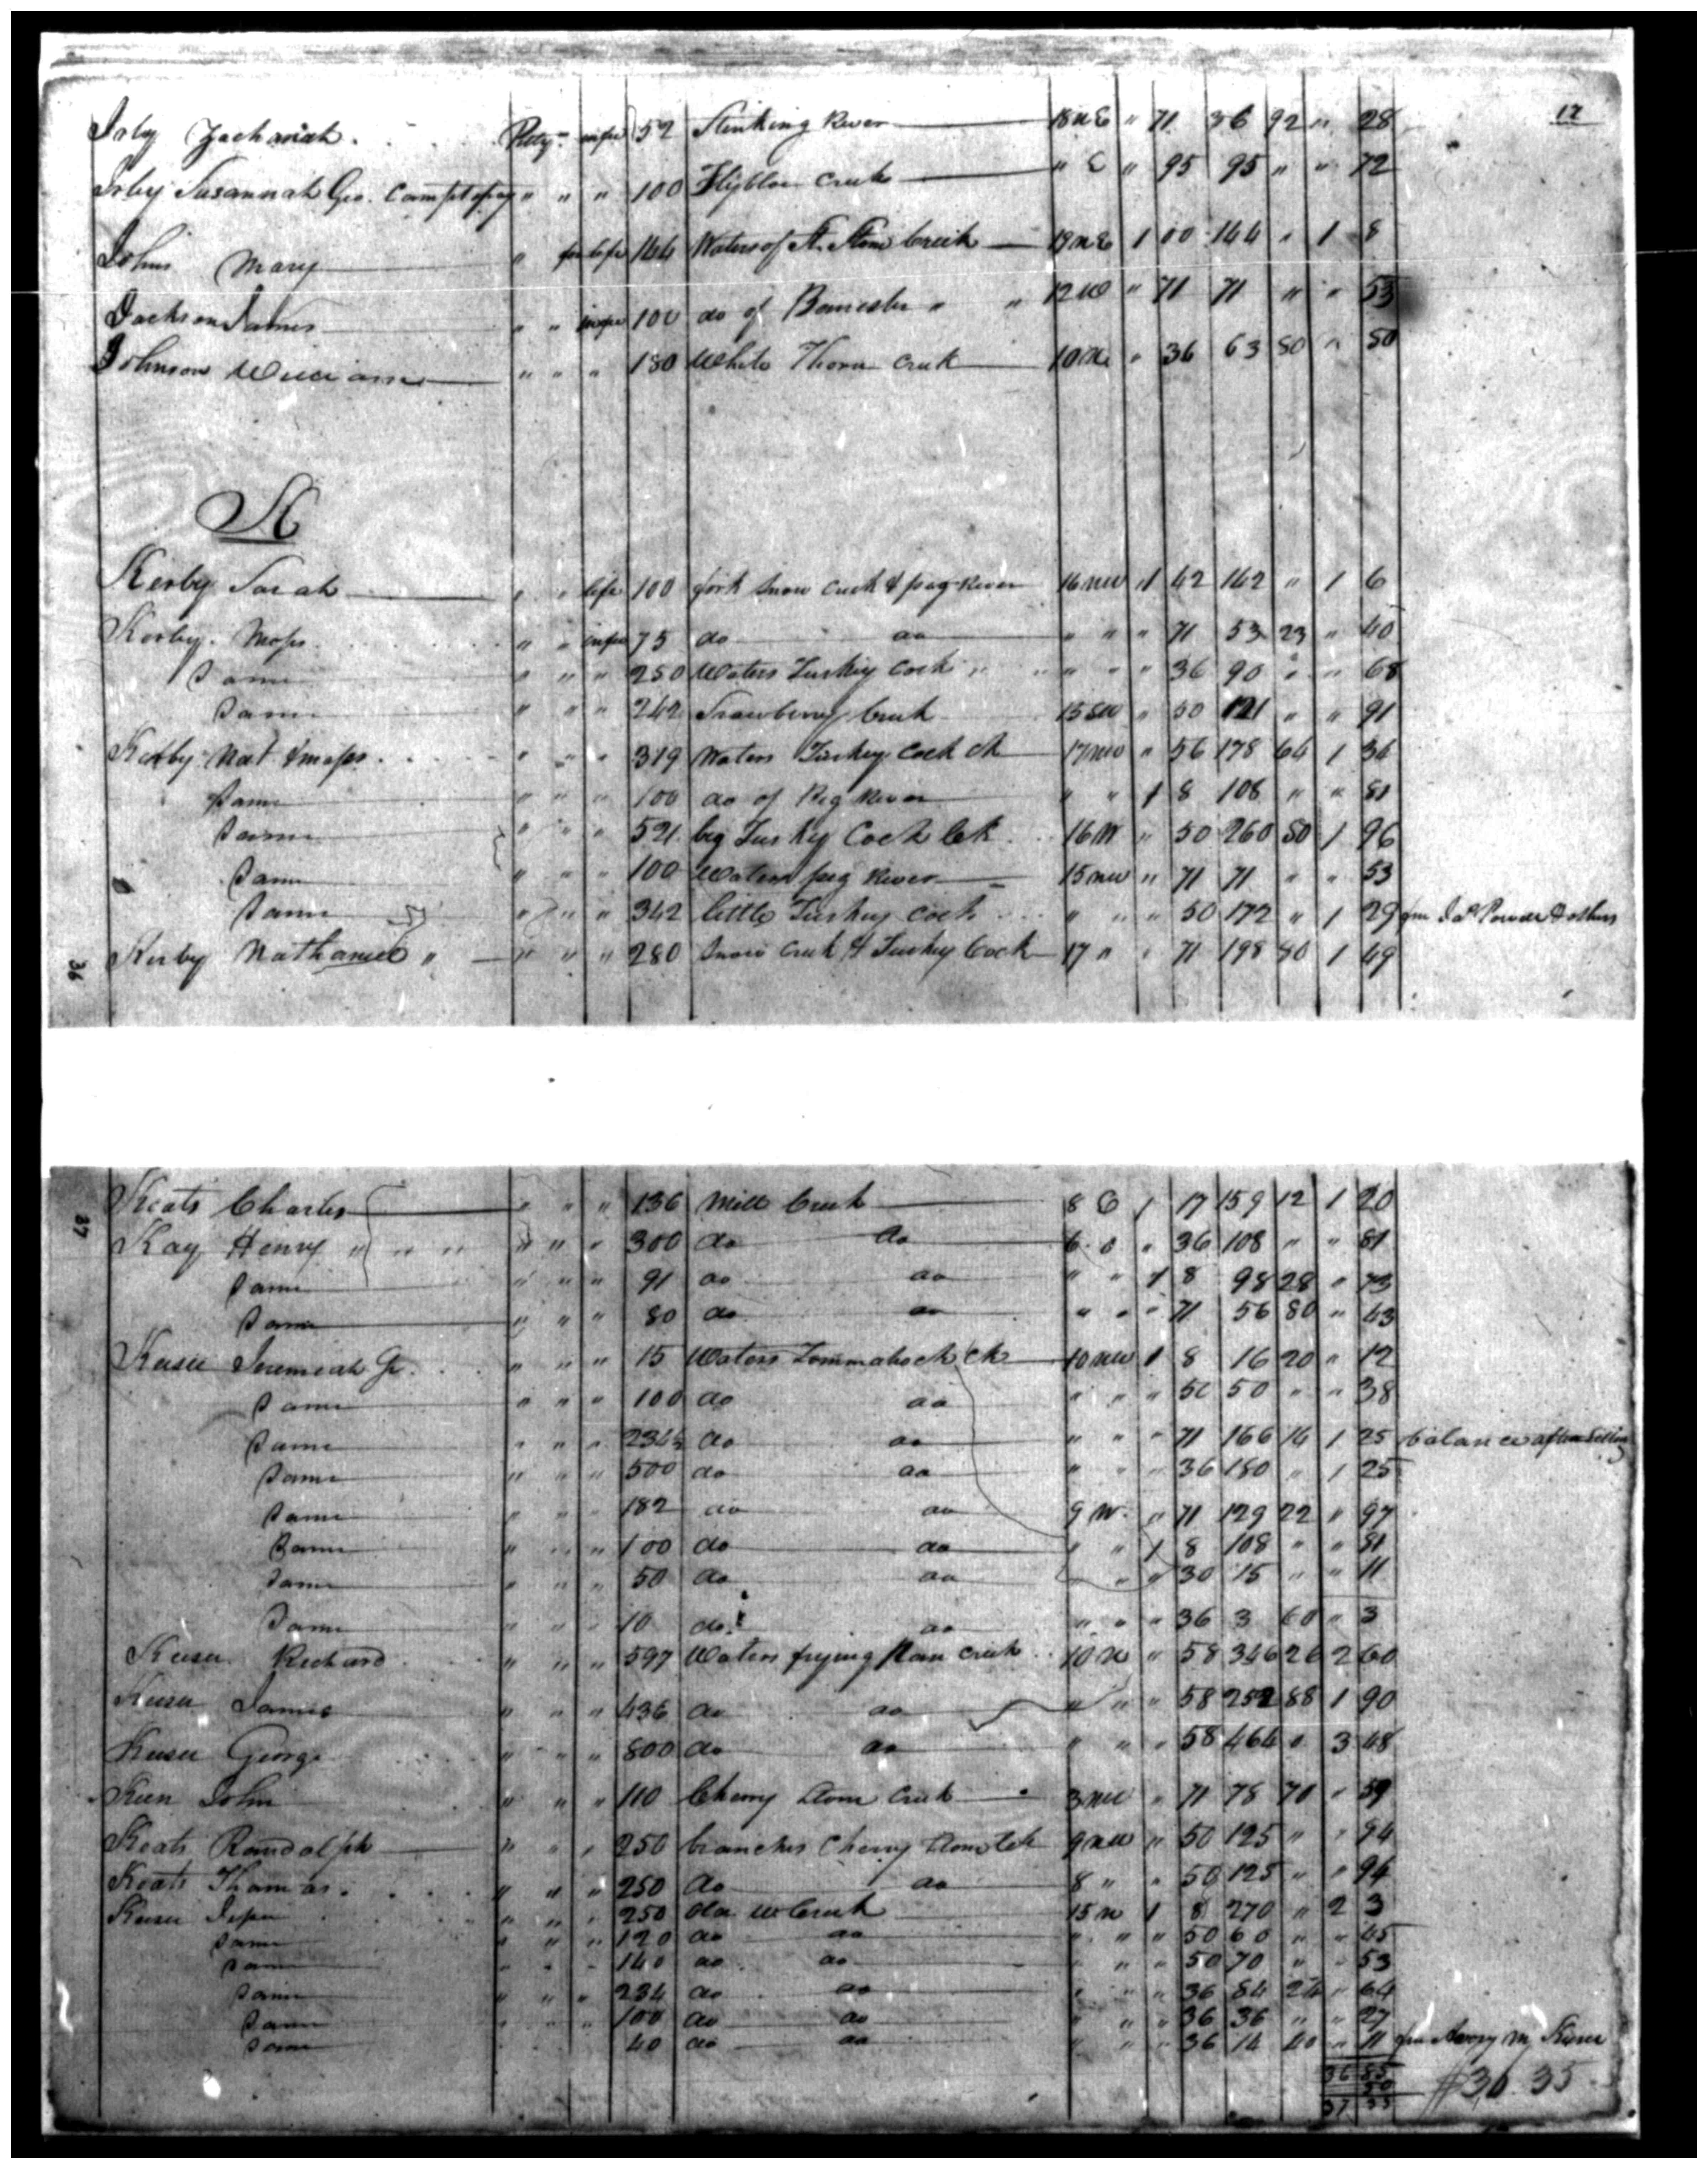 17
Irby Zachariah . Pittsy- in fee 52 Stinking River 18 n E " 71 36 92 " 28
Irby Susannah Geo. Camp " " " 100 Creek " E " 95 95 " " 72
Johns Mary " for life 144 Waters of Stone Creek 19 n E 1 00 144 " 1 8
Jackson James " " in fee 100 do of Banester " " 12 W " 71 71 " " 53
Johnson William " " " 180 White Thorn Creek 10 n " 36 63 80 " 50
K
Kerby Sarah " " life 100 fork Snow Creek & pig River 16 nw 1 42 142 " 1 6
Kerby Moses " " in fee 75 do do " " " 71 53 23 " 40
Same " " " 250 Waters Turkey Cock " " " " " 36 90 " " 68
Same " " " 242 Creek 15 SW " 50 121 " " 91
Kerby Nat & Moses " " " 319 Waters Turkey Cock Ck 17 nw " 56 178 64 1 34
Same " " " 100 do of Pig River " " 1 8 108 " " 81
Same " " " 521 big Turkey Cock Ck 16 W " 50 260 50 1 96
Same " " " 100 Waters pig River 15 nw " 71 71 " " 53
Same " " " 342 little Turkey Cock " " " 50 172 " 1 29 fm
Kerby Nathaniel " " " " 280 Snow Creek & Turkey Cock 17 " " 71 198 80 1 49
36
37
Keats Charles " " " 136 Mill Creek 8 E 1 17 159 12 1 20
Kay Henry " " " " " " 300 do do 6 " " 36 108 " " 81
Same " " " 91 do do " " 1 8 98 28 " 73
Same " " " 80 do do " " " 71 56 80 " 43
Jeremiah " " " 15 Waters Tommahock Ck 10 nw 1 8 16 20 " 12
Same " " " 100 do do " " " 50 50 " " 38
Same " " " 234 do do " " " 71 166 14 1 25 balance after selling
Same " " " 500 do do " " " 36 180 " 1 25
Same " " " 182 do do 9 W. " 71 129 22 " 97
Same " " " 100 do do " " 1 8 108 " " 81
Same " " " 50 do do " " " 30 15 " " 11
Same " " " 10 do do " " " 36 3 60 " 3
Richard " " " 597 Waters frying Pan Creek 10 n " 58 346 26 2 60
James " " " 436 do do " " " 58 252 88 1 90
George " " " 800 do do " " " 58 464 " 3 48
Keen John " " " 110 Cherry Stone Creek 3 nw " 71 78 70 " 59
Keats Randolph " " " 250 branches Cherry Stone Ck 9 nw " 50 125 " " 94
Keats Thomas . " " " 250 do do 8 " " 50 125 " " 94
" " " 250 Creek 15 n 1 8 270 " 2 3
Same " " " 120 do do " " " 50 60 " " 45
Same " " " 140 do do " " " 50 70 " " 53
Same " " " 234 do do " " " 36 84 24 " 64
Same " " " 100 do do " " " 36 36 " " 27
Same 40 do do " " " 36 14 40 " 11 fm
36 85
50
37 35
$36.35